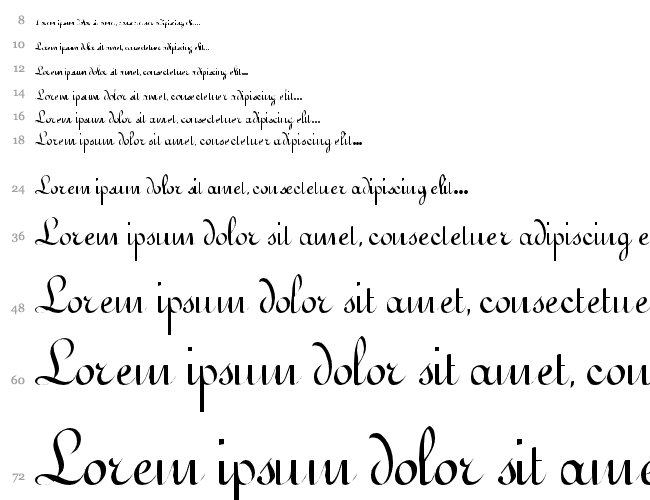 8 Lorem ipsum dolor sit amet, consectetuer adipiscing elit...
10 Lorem ipsum dolor sit amet, consectetuer adipiscing elit...
12 Lorem ipsum dolor sit amet, consectetuer adipiscing elit...
14 Lorem ipsum dolor sit amet, consectetuer adipiscing elit...
16 Lorem ipsum dolor sit amet, consectetuer adipiscing elit...
18 Lorem ipsum dolor sit amet, consectetuer adipiscing elit...
24 Lorem ipsum dolor sit amet, consectetuer adipiscing elit...
36 Lorem ipsum dolor sit amet, consectetuer adipiscing e
48 Lorem ipsum dolor sit amet, consectetue
60 Lorem ipsum dolor sit amet, con
72 Lorem ipsum dolor sit ame